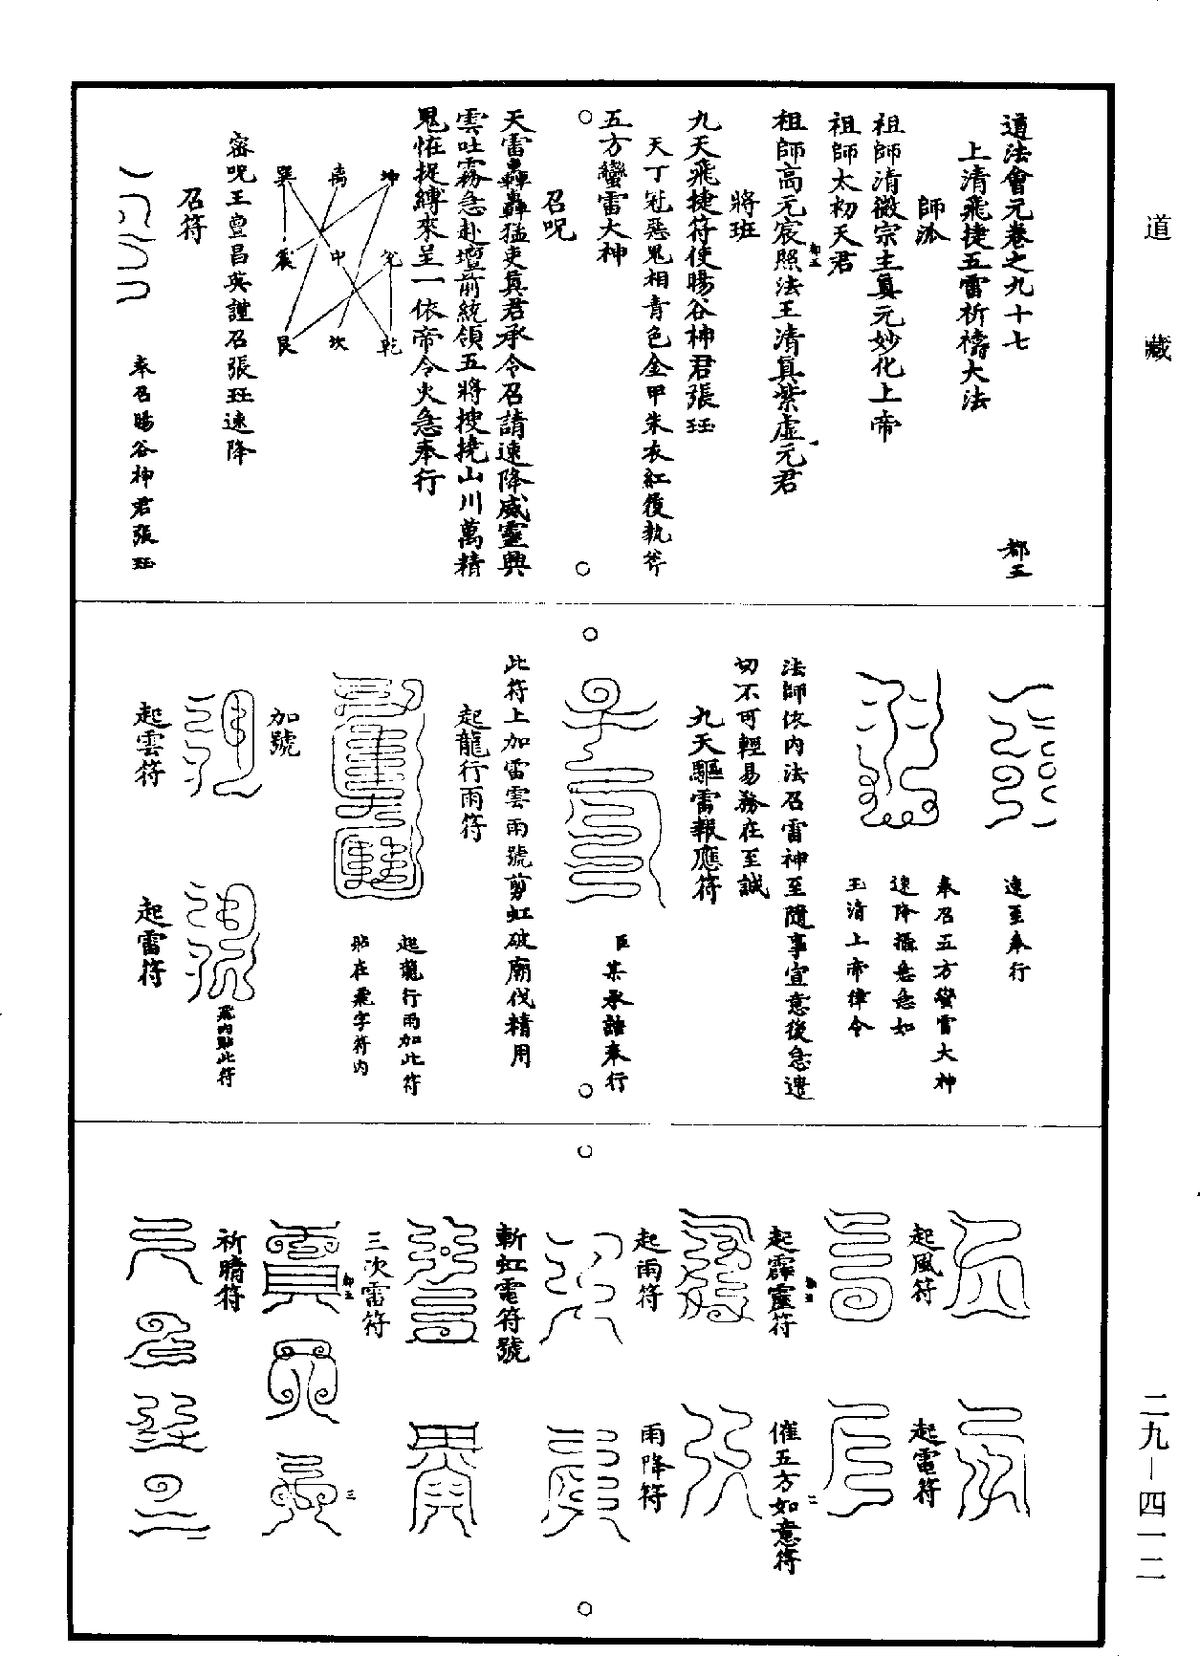 道藏
道法會元卷之九十七
都五
上清飛捷五雷祈禱大法
師派
祖師清微宗主真元妙化上帝
祖師太初天君
祖師高元宸照法王清真紫虛元君
將班
九天飛捷符使暘谷神君張珏
天丁冠惡鬼相青色金甲朱衣紅後執斧
五方蠻雷大神
召呪
天雷轟轟猛吏真君承令召請速降威靈興
雲吐霧急赴壇前統領五將搜撓山川萬精
鬼怪捉縛來呈一依帝令火急奉行
坤 离 巽
兌 中 震
乾 坎 艮
密呪王豐昌英謹召張珏速降
召符
奉召暘谷神君張珏
速至奉行
奉召五方蠻雷大神
速降攝急急如
玉清上帝律令
法師依內法召雷神至隨事宣意後急遣
切不可輕易務在至誠
九天驅雷報應符
臣某承誥奉行
此符上加雷雲雨號剪虹破廟伐精用
起龍行雨符
起龍行雨加此符
貼在飛字符內
加號
起雲符
起雷符
飛內貼此符
起風符
起電符
起霹靂符
催五方如意符
二
起雨符
雨降符
斬虹電符號
三次雷符
都五
三
祈晴符
二九—四一二